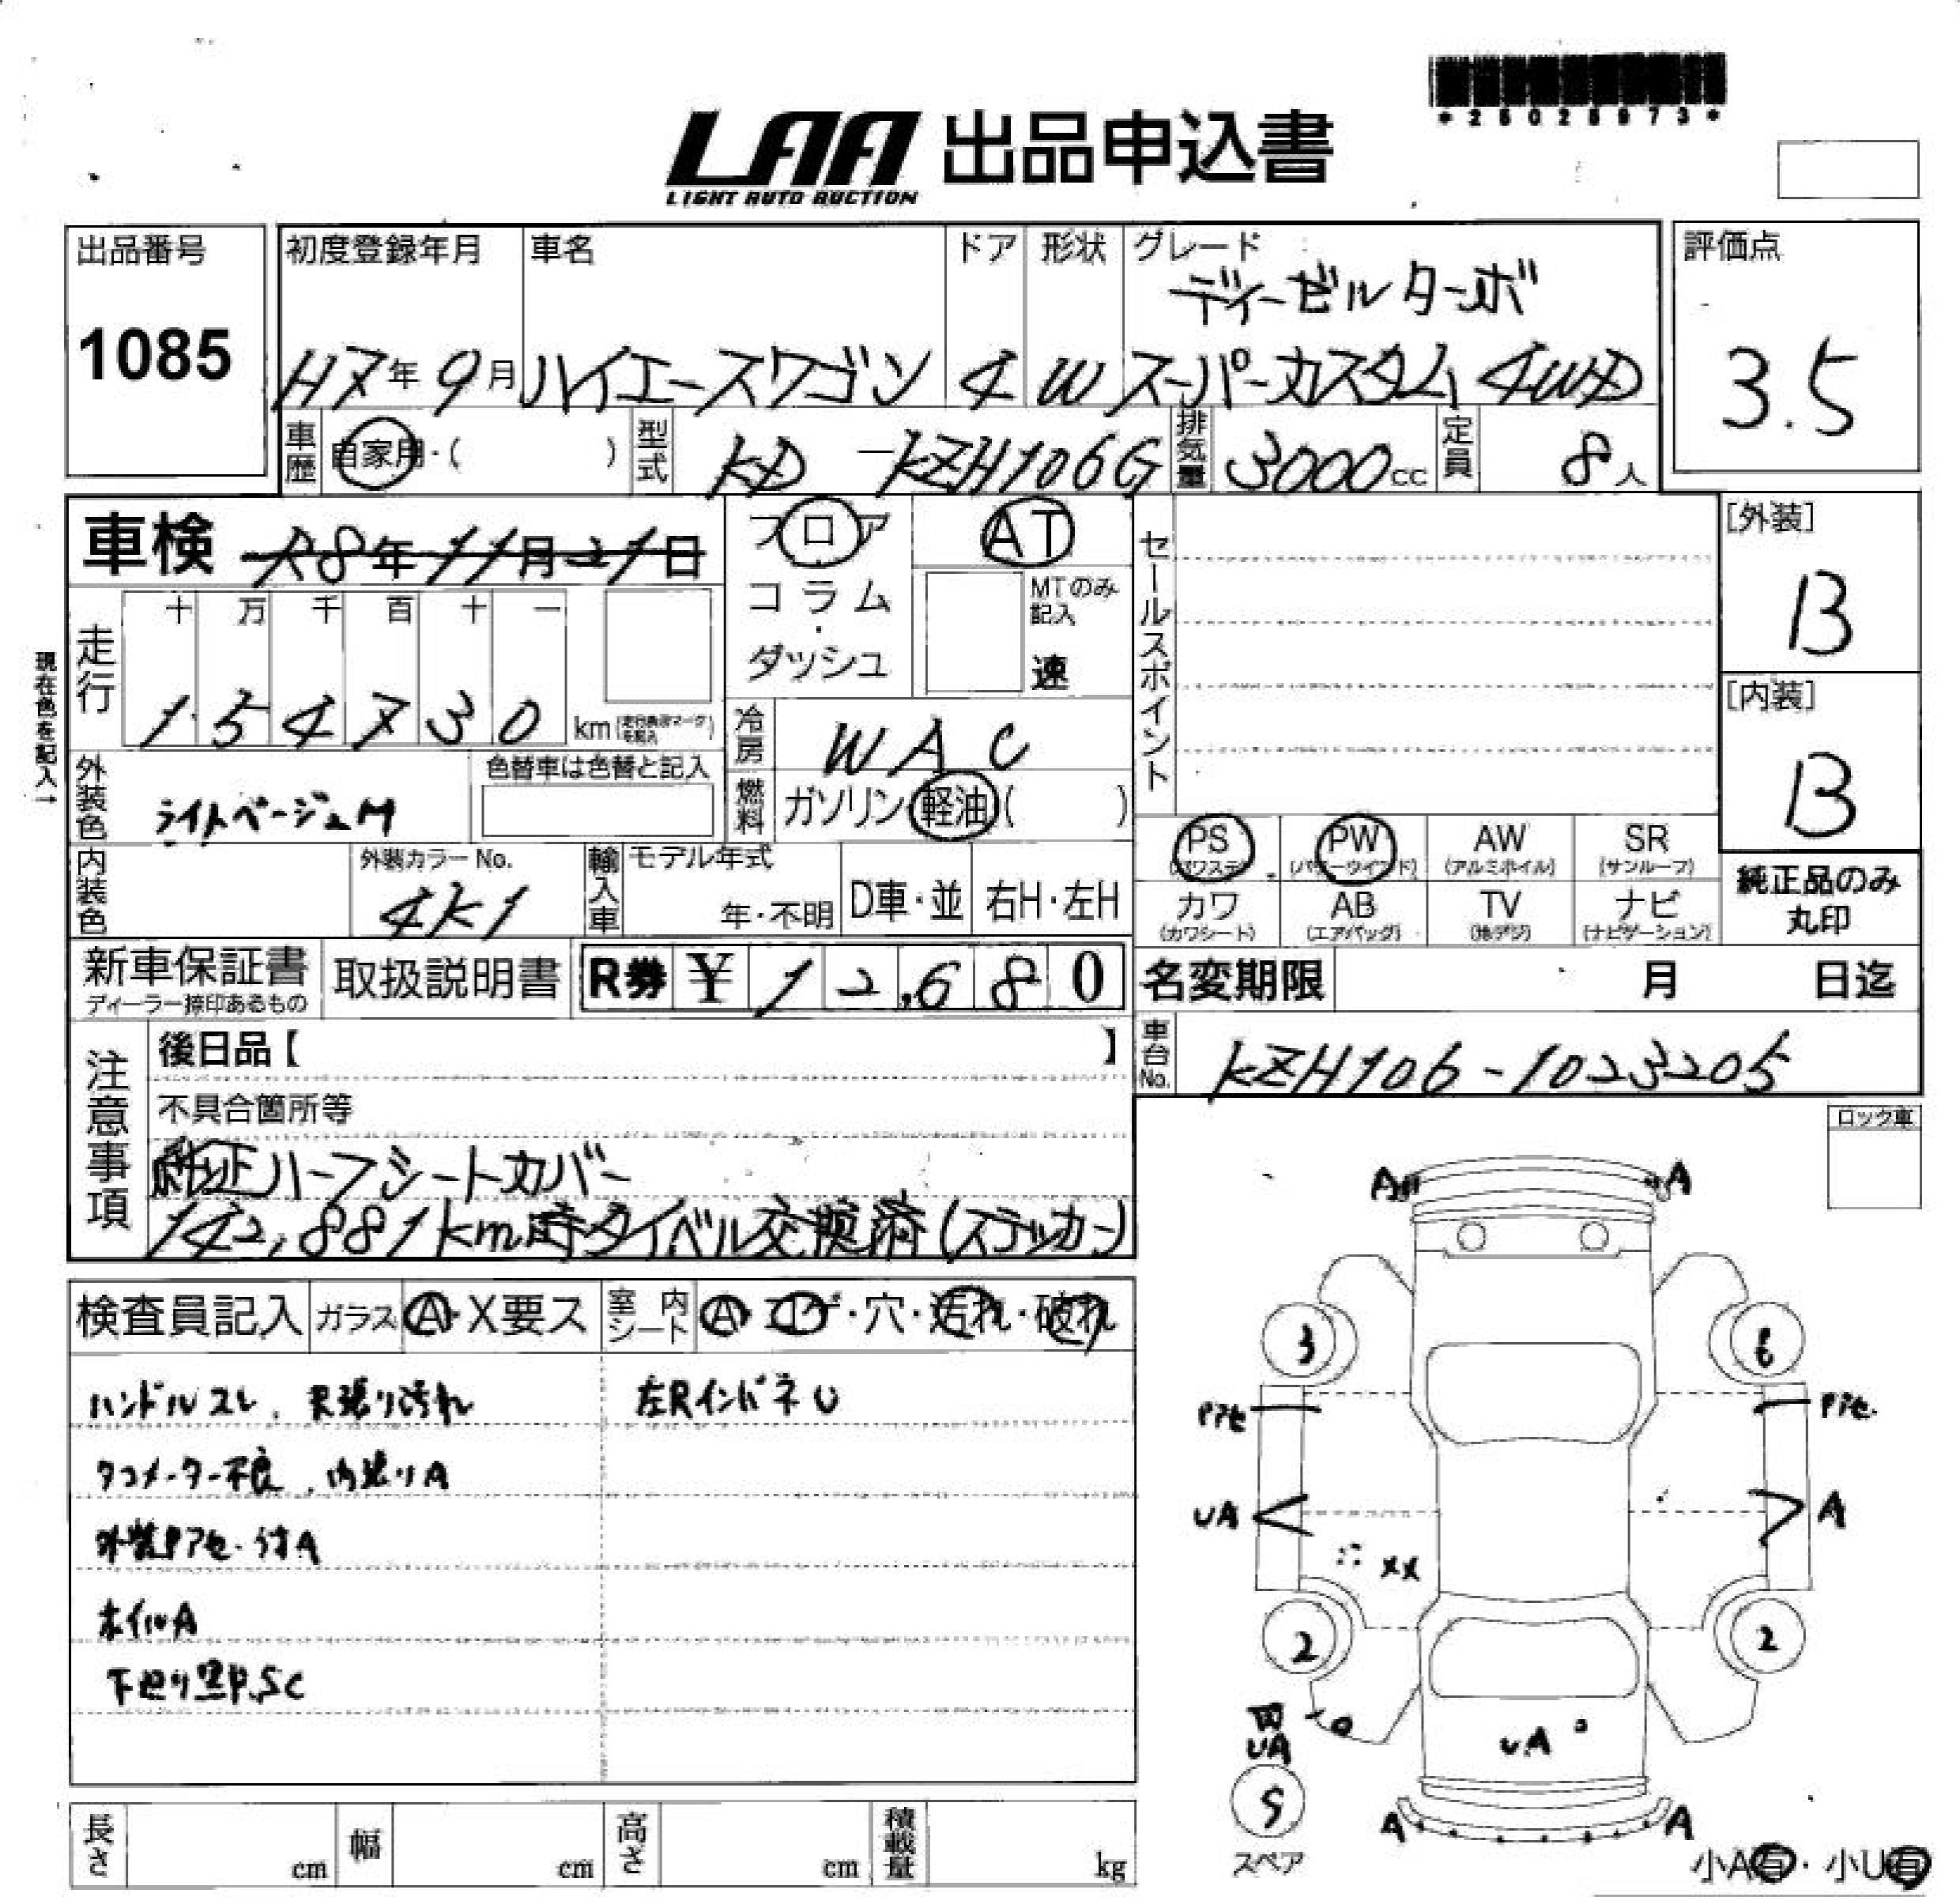 *25028973*
LAA 出品申込書
LIGHT AUTO AUCTION
出品番号
1085
初度登録年月 車名 ドア 形状 グレード
ディーゼルターボ
H7年9月 ハイエースワゴン 4 W スーパーカスタム 4WD
評価点
3.5
車歴 自家用・( ) 型式 KD-KZH106G 排気量 3000cc 定員 8人
車検 R8年11月21日
フロア・コラム・ダッシュ
AT
MTのみ記入
速
セールスポイント
[外装]
B
[内装]
B
現在色を記入→
走行 十 万 千 百 十 一
154730 km
冷房 WAC
外装色 ライトベージュM
色替車は色替と記入
燃料 ガソリン・軽油( )
内装色
外装カラーNo.
4K1
輸入車 モデル年式
年・不明 D車・並 右H・左H
PS (パワステ) PW (パワーウインド) AW (アルミホイル) SR (サンルーフ)
カワ (カワシート) AB (エアバッグ) TV (地デジ) ナビ (ナビゲーション)
純正品のみ
丸印
新車保証書
ディーラー捺印あるもの
取扱説明書 R券 ¥12,680
名変期限 月 日迄
車台No. KZH106-1023205
注意事項
後日品【 】
不具合箇所等
純正ハーフシートカバー
142,881km時タイベル交換済(ステッカー)
ロック車
検査員記入 ガラス A・X要ス 室内シート A・コゲ・穴・汚れ・破れ
ハンドルスレ、天張り汚れ 左RインパネU
タコメーター不良、内張りA
外装Pアセ・キズA
ホイルA
下廻り黒P,SC
A A
3 6
Pアセ Pアセ
UA A
XX
2 2
UA
UA
S
スペア
A A
小A有・小U有
長さ cm 幅 cm 高さ cm 積載量 kg